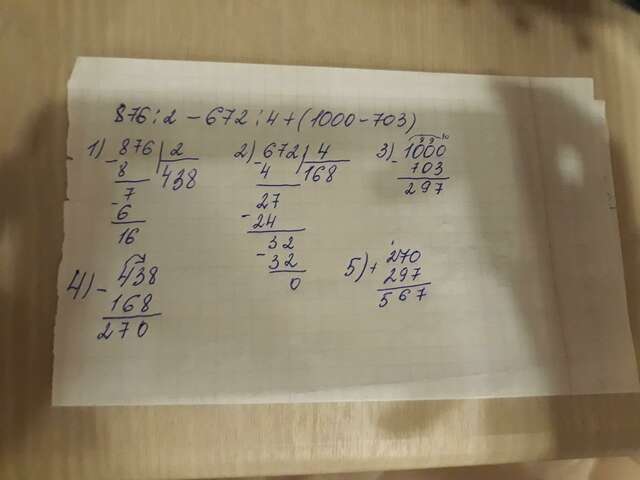 876:2-672:4+(1000-703)
1) -876|2
8 438
7
-6
16
2) -672|4
4 168
27
-24
32
-32
0
3) -1000
703
297
4) -438
168
270
5) +270
297
567